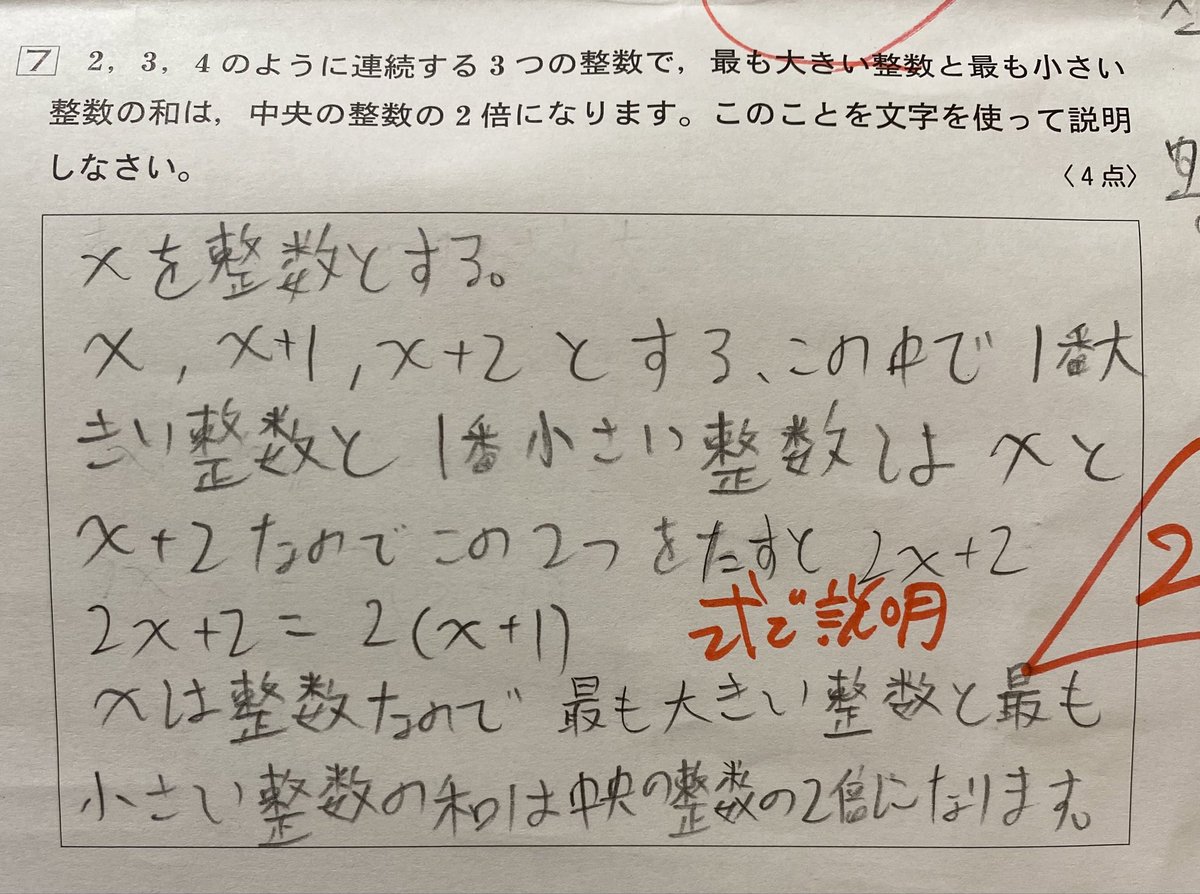 7 2，3，4のように連続する3つの整数で，最も大きい整数と最も小さい
整数の和は，中央の整数の2倍になります。このことを文字を使って説明
しなさい。
〈4点〉
xを整数とする。
x，x+1，x+2とする、この中で1番大
きい整数と1番小さい整数はxと
x+2なのでこの2つをたすと2x+2
2x+2=2(x+1)
式で説明
2
xは整数なので最も大きい整数と最も
小さい整数の和は中央の整数の2倍になります。